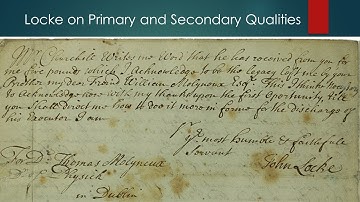 Locke on Primary and Secondary Qualities
Mr Churchill Writes me Word that he has received from you for
me five pounds which I Acknowledge to be the legacy left me by your
Brother my dear Friend William Molyneux Esqr. This I think necessary
to Acknowledge now with my thanks upon the first Oportunity, till
you Shall direct me how to doe it more in forme for the discharge of
his Executor I am
Sr
yr most humble & faithfull
Servant
John Locke
For Dr. Thomas Molyneux
Dr of Physick
in Dublin